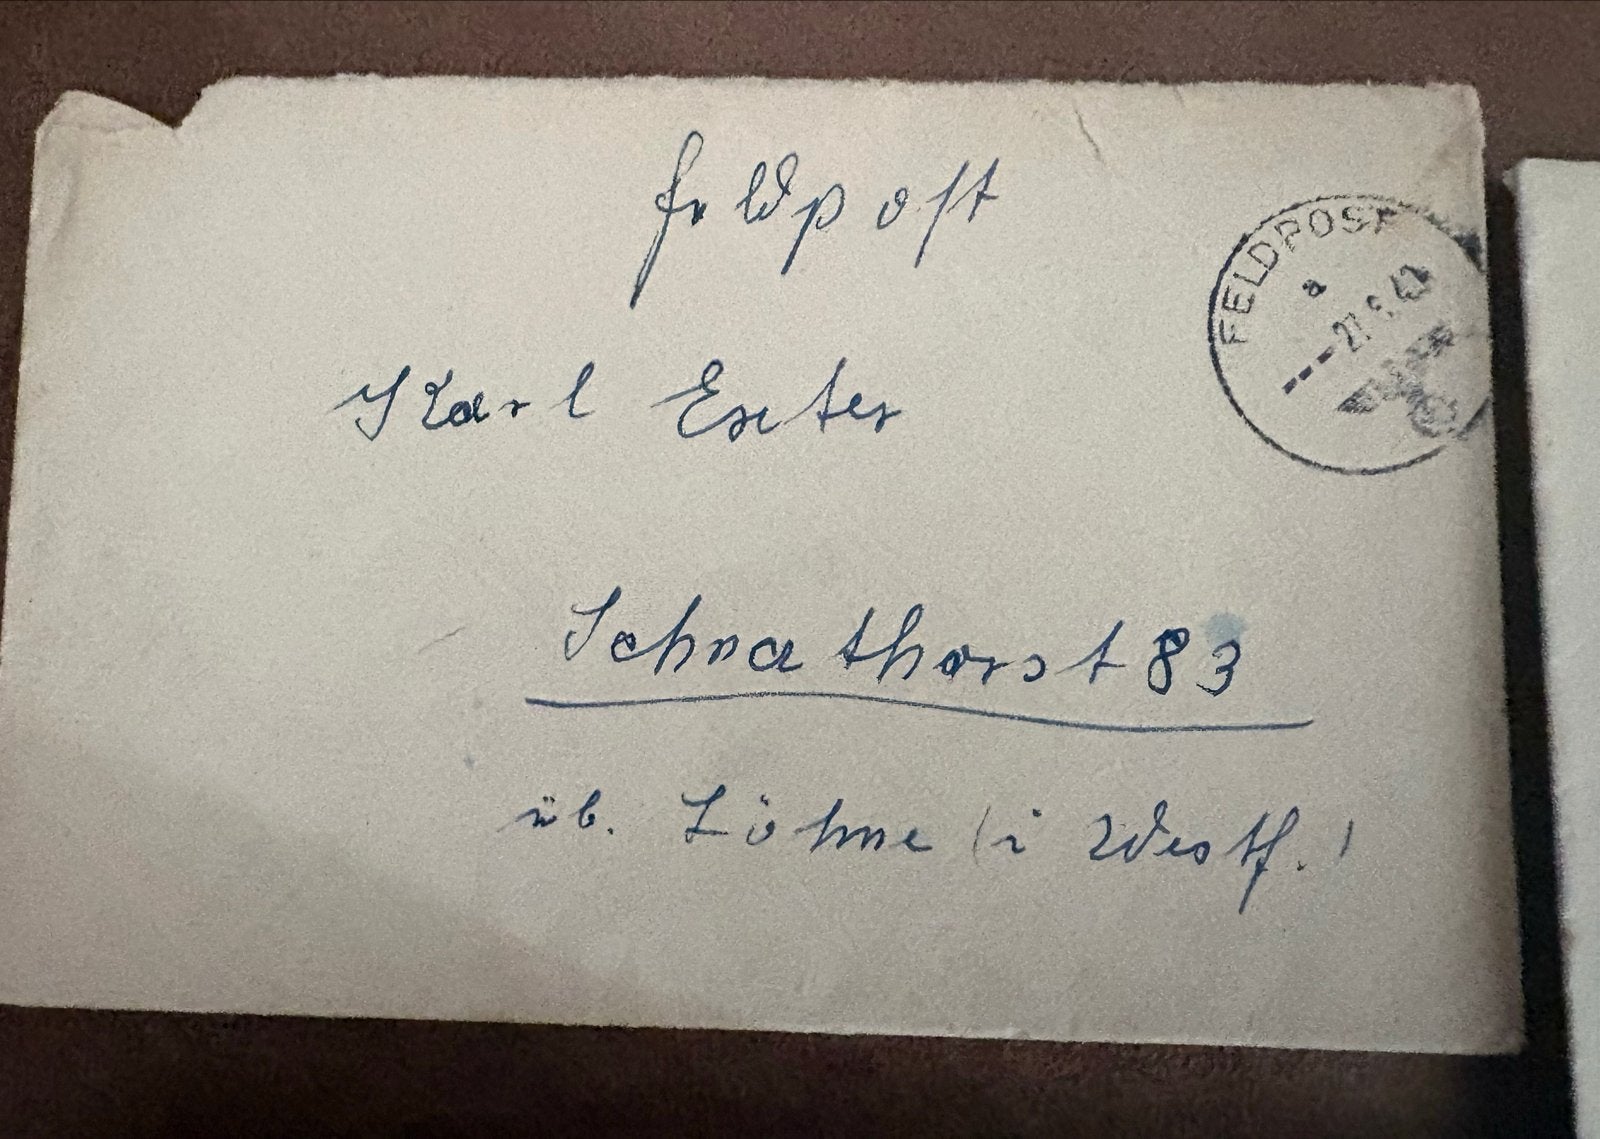 Feldpost
FELDPOST
a
Karl Exter
Schnathorst 83
üb. Löhne (i Westf.)